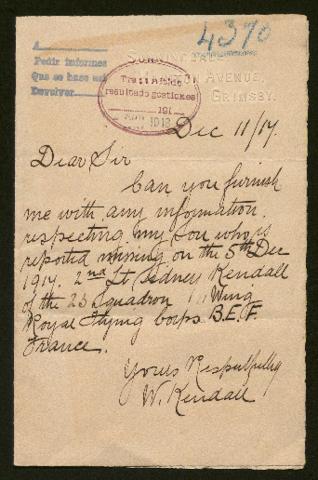 4370
A
Pedir informes
Que se hase así
Devolver
AVENUE,
GRIMSBY.
Trasladado
resultado gestiones
191
1918
Dec 11/17.
Dear Sir
Can you furnish
me with any information
respecting my Son who is
reported missing on the 5th Dec
1917. 2nd Lt Sidney Kendall
of the 23 Squadron Wing
Royal Flying Corps B.E.F.
France.
Yours Respectfully
W. Kendall